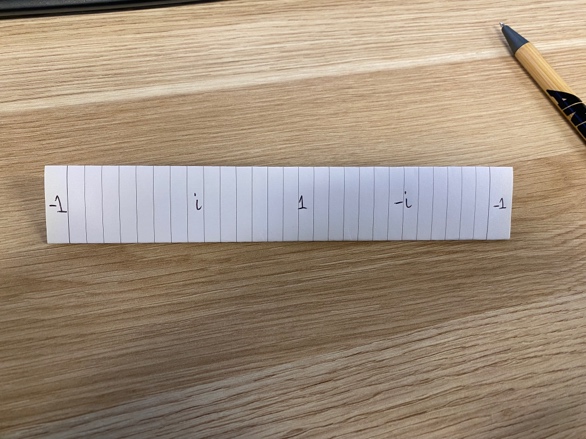 -1 i 1 -i -1